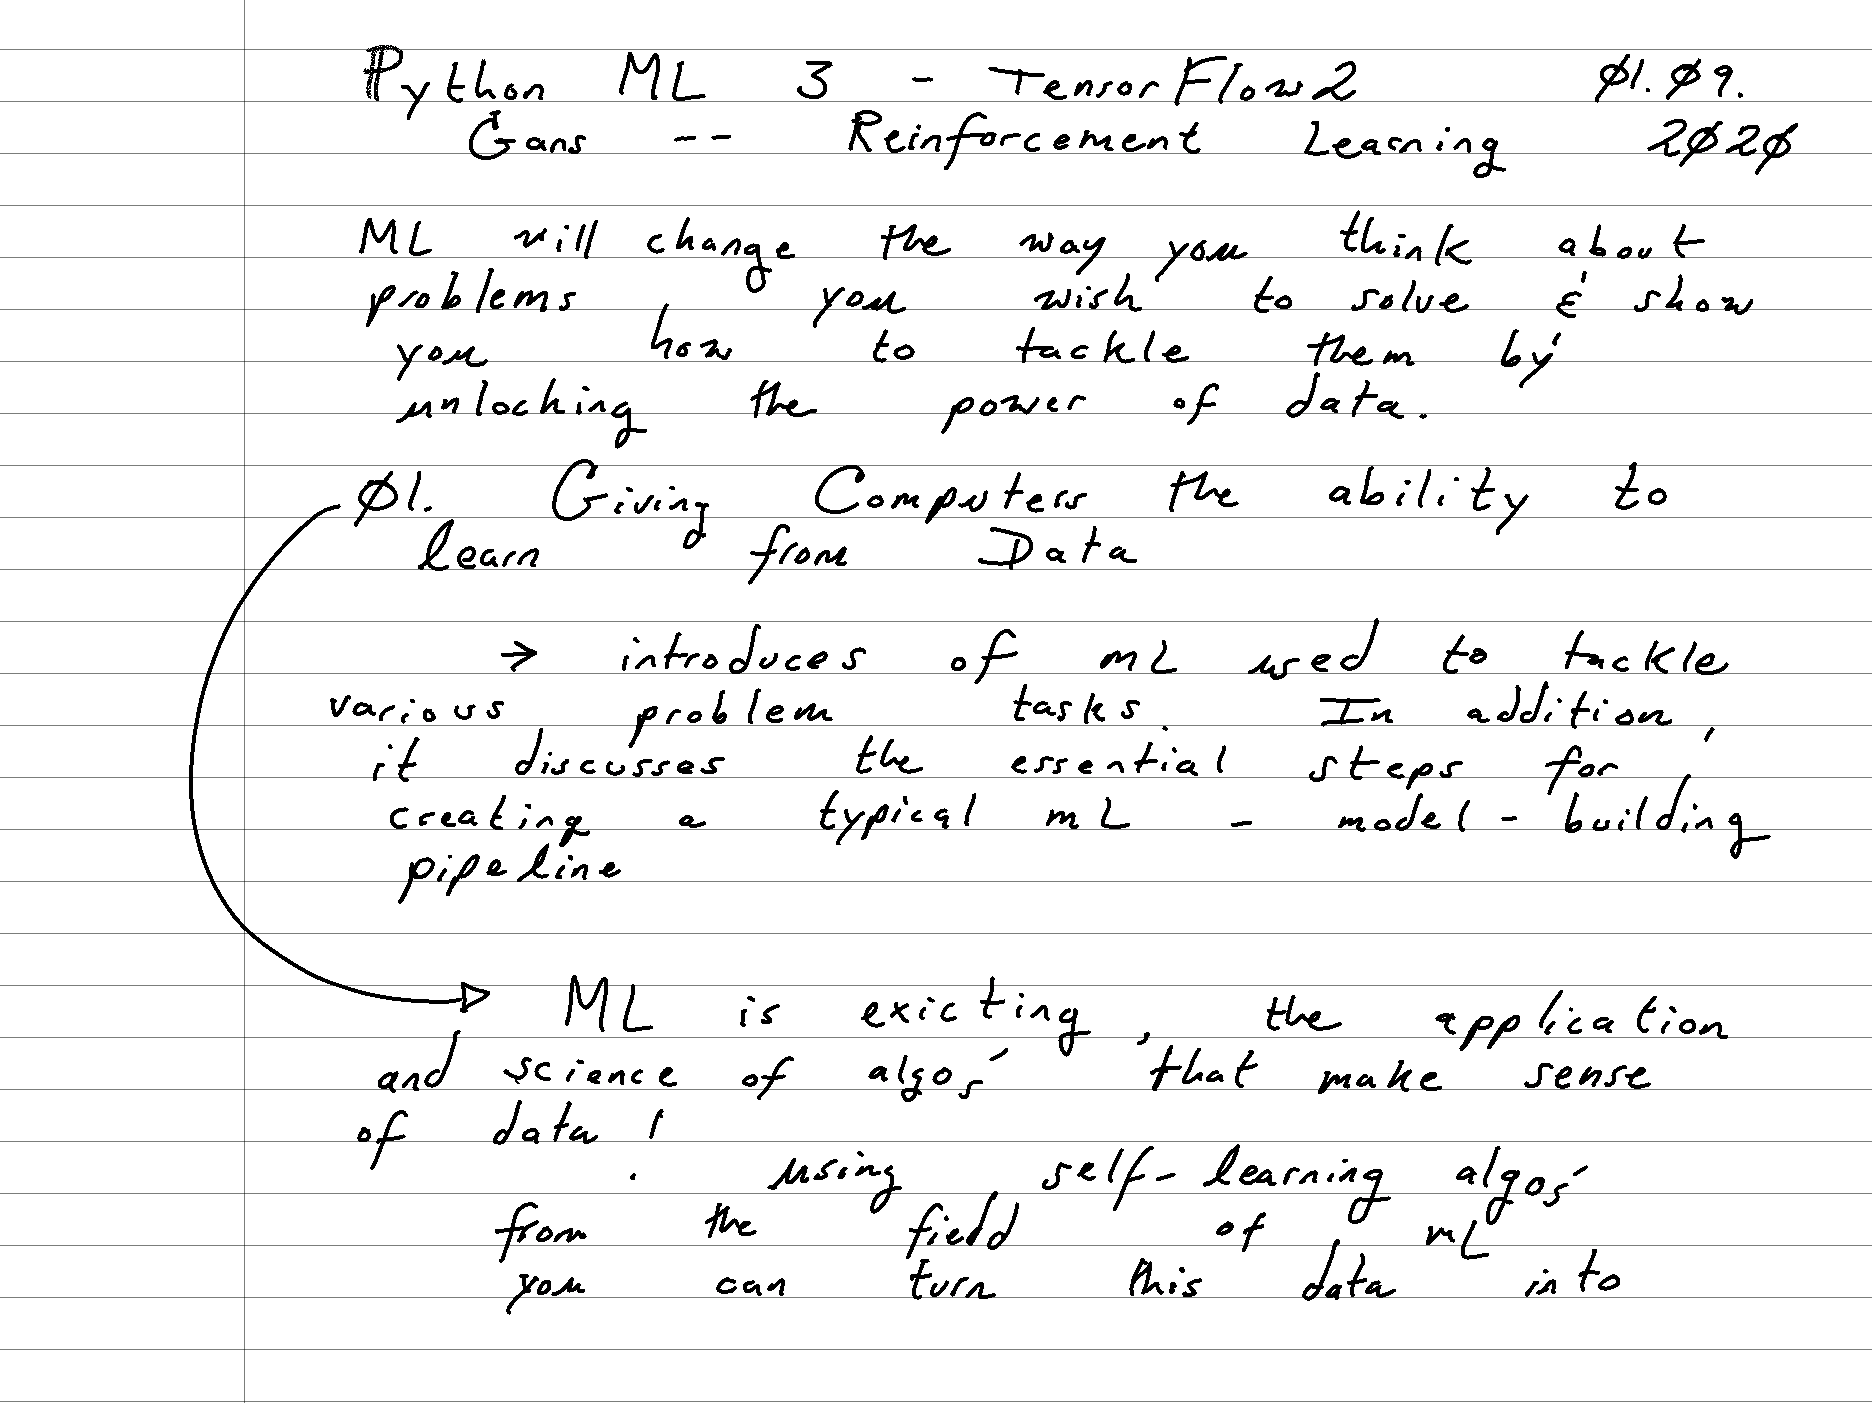 Python ML 3 - TensorFlow2 Ø1.Ø9.
Gans -- Reinforcement Learning 2Ø2Ø
ML will change the way you think about
problems you wish to solve & show
you how to tackle them by
unlocking the power of data.
Ø1. Giving Computers the ability to
learn from Data
→ introduces of mL used to tackle
various problem tasks. In addition,
it discusses the essential steps for
creating a typical mL - model - building
pipeline
ML is exicting, the application
and science of algos' that make sense
of data!
using self-learning algos'
from the field of mL
you can turn this data into